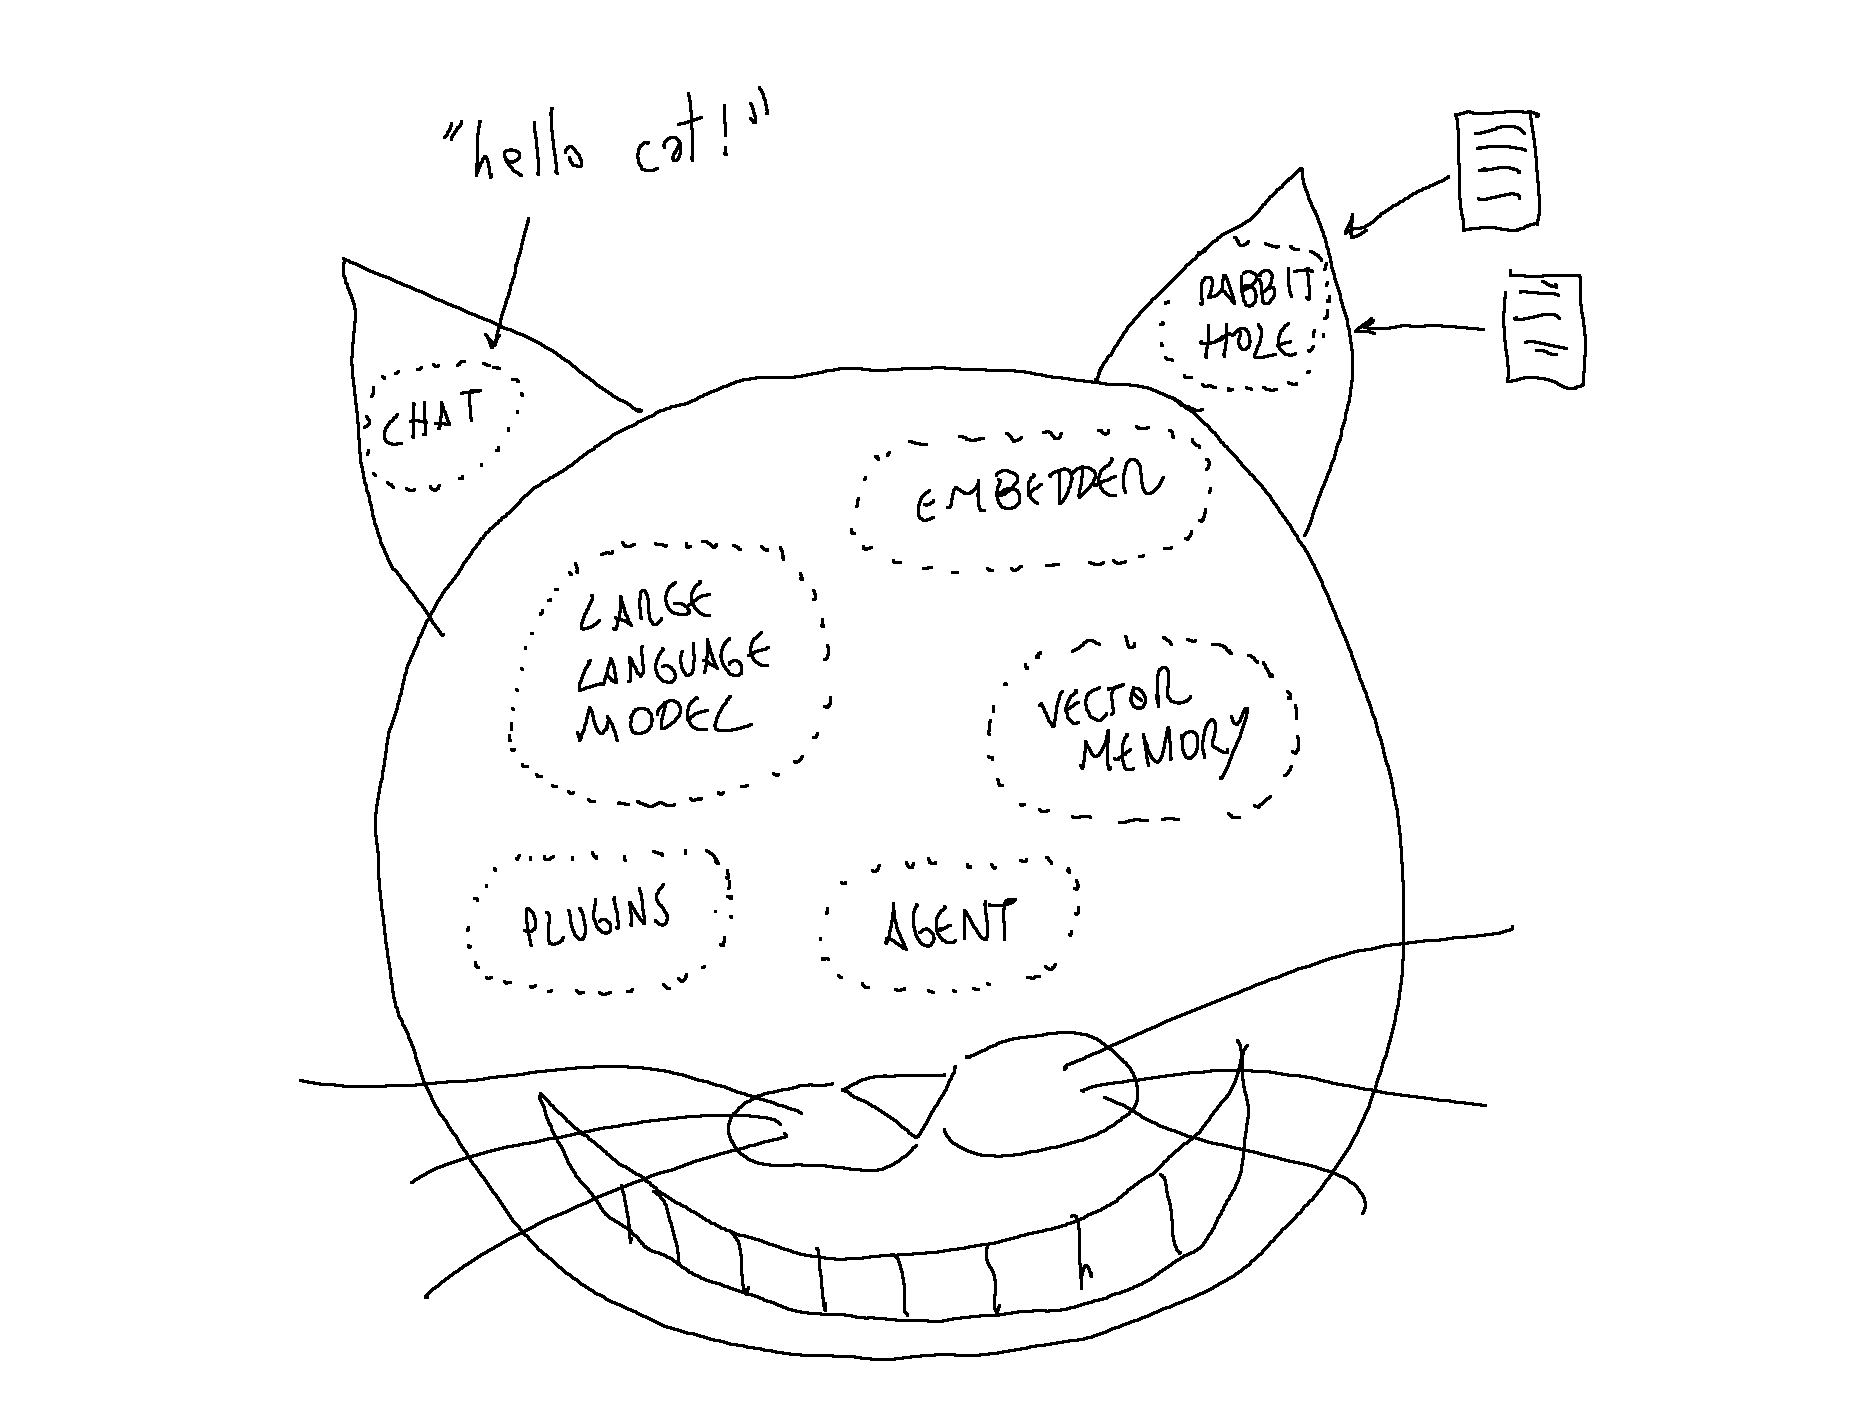 "hello cat!"
RABBIT
HOLE
CHAT
EMBEDDER
LARGE
LANGUAGE
MODEL
VECTOR
MEMORY
PLUGINS
AGENT